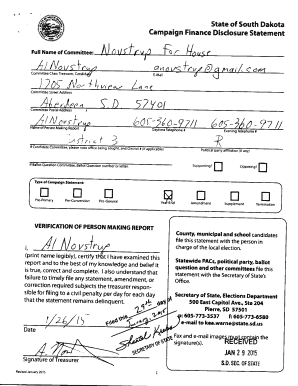 State of South Dakota
Campaign Finance Disclosure Statement
Full Name of Committee: Novstrup For House
Al Novstrup anovstrup@gmail.com
Committee Chair/Treasurer/Candidate E-Mail
1705 Northview Lane
Committee Street Address
Aberdeen S.D. 57401
Committee Postal Address
Al Novstrup 605-360-9711 605-360-9711
Name of Person Making Report Daytime Telephone # Evening Telephone #
District 3 R
If Candidate Committee, please note office being sought, and District # (if applicable) Political party affiliation (if any)
If Ballot Question Committee, Ballot Question number or letter: Supporting? Opposing?
Type of Campaign Statement
Pre-Primary Pre-Convention Pre-General Year-End Amendment Supplement Termination
VERIFICATION OF PERSON MAKING REPORT
I, Al Novstrup
(print name legibly), certify that I have examined this
report and to the best of my knowledge and belief it
is true, correct and complete. I also understand that
failure to timely file any statement, amendment, or
correction required subjects the treasurer respon-
sible for filing to a civil penalty per day for each day
that the statement remains delinquent.
1/26/15
Date
Signature of Treasurer
FILED THIS 29th day of
SECRETARY OF STATE
County, municipal and school candidates
file this statement with the person in
charge of the local election.
Statewide PACs, political party, ballot
question and other committees file this
statement with the Secretary of State's
Office.
Secretary of State, Elections Department
500 East Capitol Ave, Ste 204
Pierre, SD 57501
p: 605-773-3537 f: 605-773-6580
Fax and e-mail images must contain the
signature(s).
RECEIVED
JAN 29 2015
S.D. SEC. OF STATE
Revised January 2015